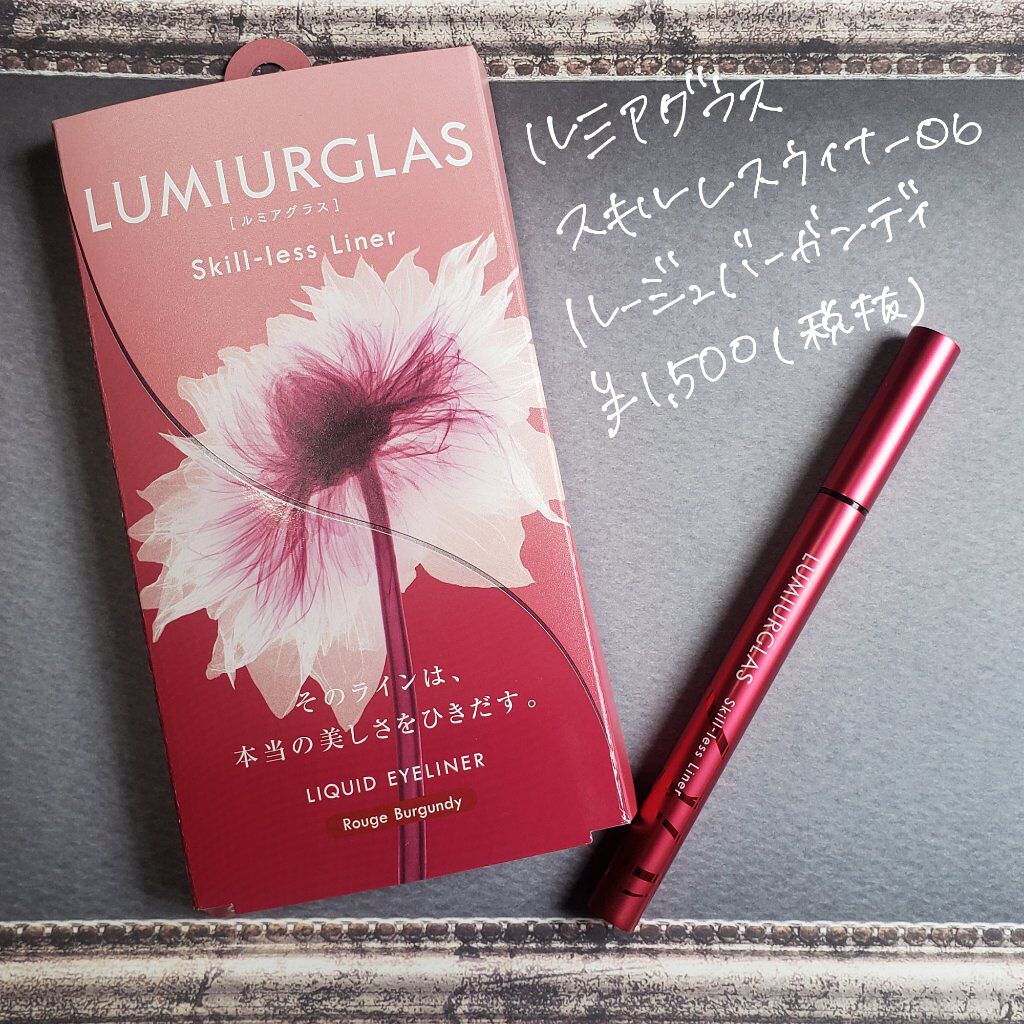 LUMIURGLAS
[ルミアグラス]
Skill-less Liner
そのラインは、
本当の美しさをひきだす。
LIQUID EYELINER
Rouge Burgundy
ルミアグラス
スキルレスライナー06
ルージュバーガンディ
¥1,500(税抜)
LUMIURGLAS Skill-less Liner